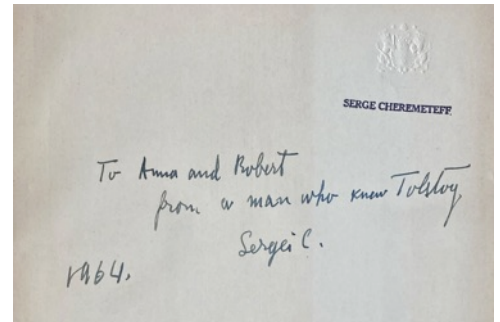 SERGE CHEREMETEFF
To Anna and Robert
from a man who knew Tolstoy
Sergei C.
1964.